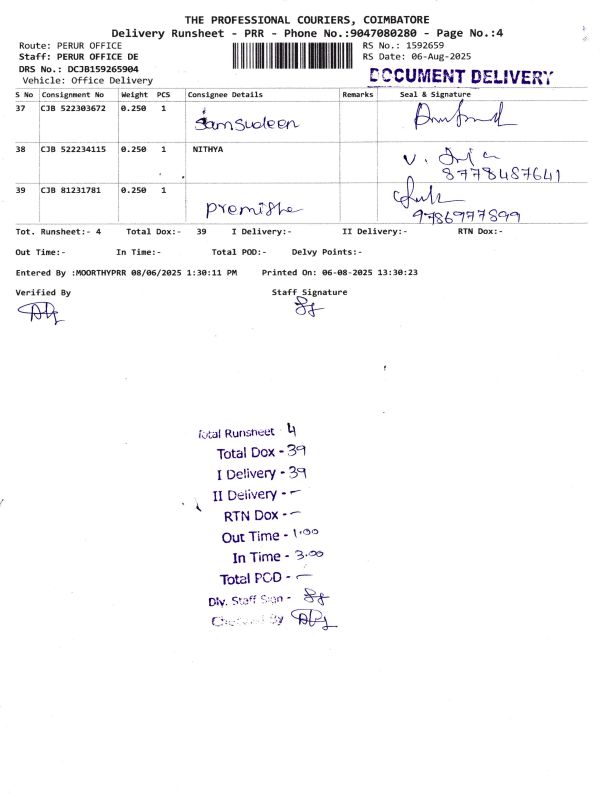 THE PROFESSIONAL COURIERS, COIMBATORE
Delivery Runsheet - PRR - Phone No.:9047080280 - Page No.:4
Route: PERUR OFFICE RS No.: 1592659
Staff: PERUR OFFICE DE RS Date: 06-Aug-2025
DRS No.: DCJB159265904 DOCUMENT DELIVERY
Vehicle: Office Delivery
S No Consignment No Weight PCS Consignee Details Remarks Seal & Signature
37 CJB 522303672 0.250 1 Samsudeen
38 CJB 522234115 0.250 1 NITHYA
8778487641
39 CJB 81231781 0.250 1 premisha
9786977899
Tot. Runsheet:- 4 Total Dox:- 39 I Delivery:- II Delivery:- RTN Dox:-
Out Time:- In Time:- Total POD:- Delvy Points:-
Entered By :MOORTHYPRR 08/06/2025 1:30:11 PM Printed On: 06-08-2025 13:30:23
Verified By Staff Signature
Total Runsheet - 4
Total Dox - 39
I Delivery - 39
II Delivery - -
RTN Dox - -
Out Time - 1.00
In Time - 3.00
Total POD - -
Dlv. Staff Sign -
Checked By